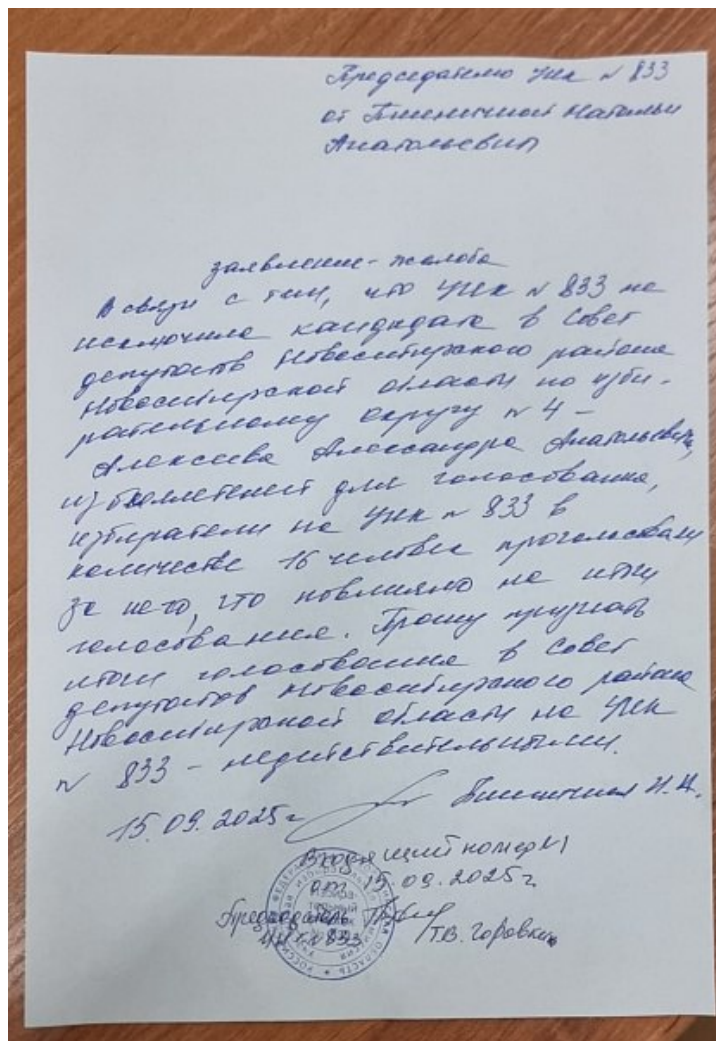 Председателю УИК № 833
от Пшеничной Натальи
Анатольевны
заявление-жалоба
В связи с тем, что УИК № 833 не
исключила кандидата в Совет
депутатов Новосибирского района
Новосибирской области по изби-
рательному округу № 4 –
Алексеева Александра Анатольевича,
из бюллетеней для голосования,
избиратели на УИК № 833 в
количестве 16 человек проголосовали
за него, что повлияло на итоги
голосования. Прошу признать
итоги голосования в Совет
депутатов Новосибирского района
Новосибирской области на УИК
№ 833 – недействительными.
15.09.2025г Пшеничная Н.А.
Входящий номер №1
от 15.09.2025г
Председатель
УИК №833 /Т.В.